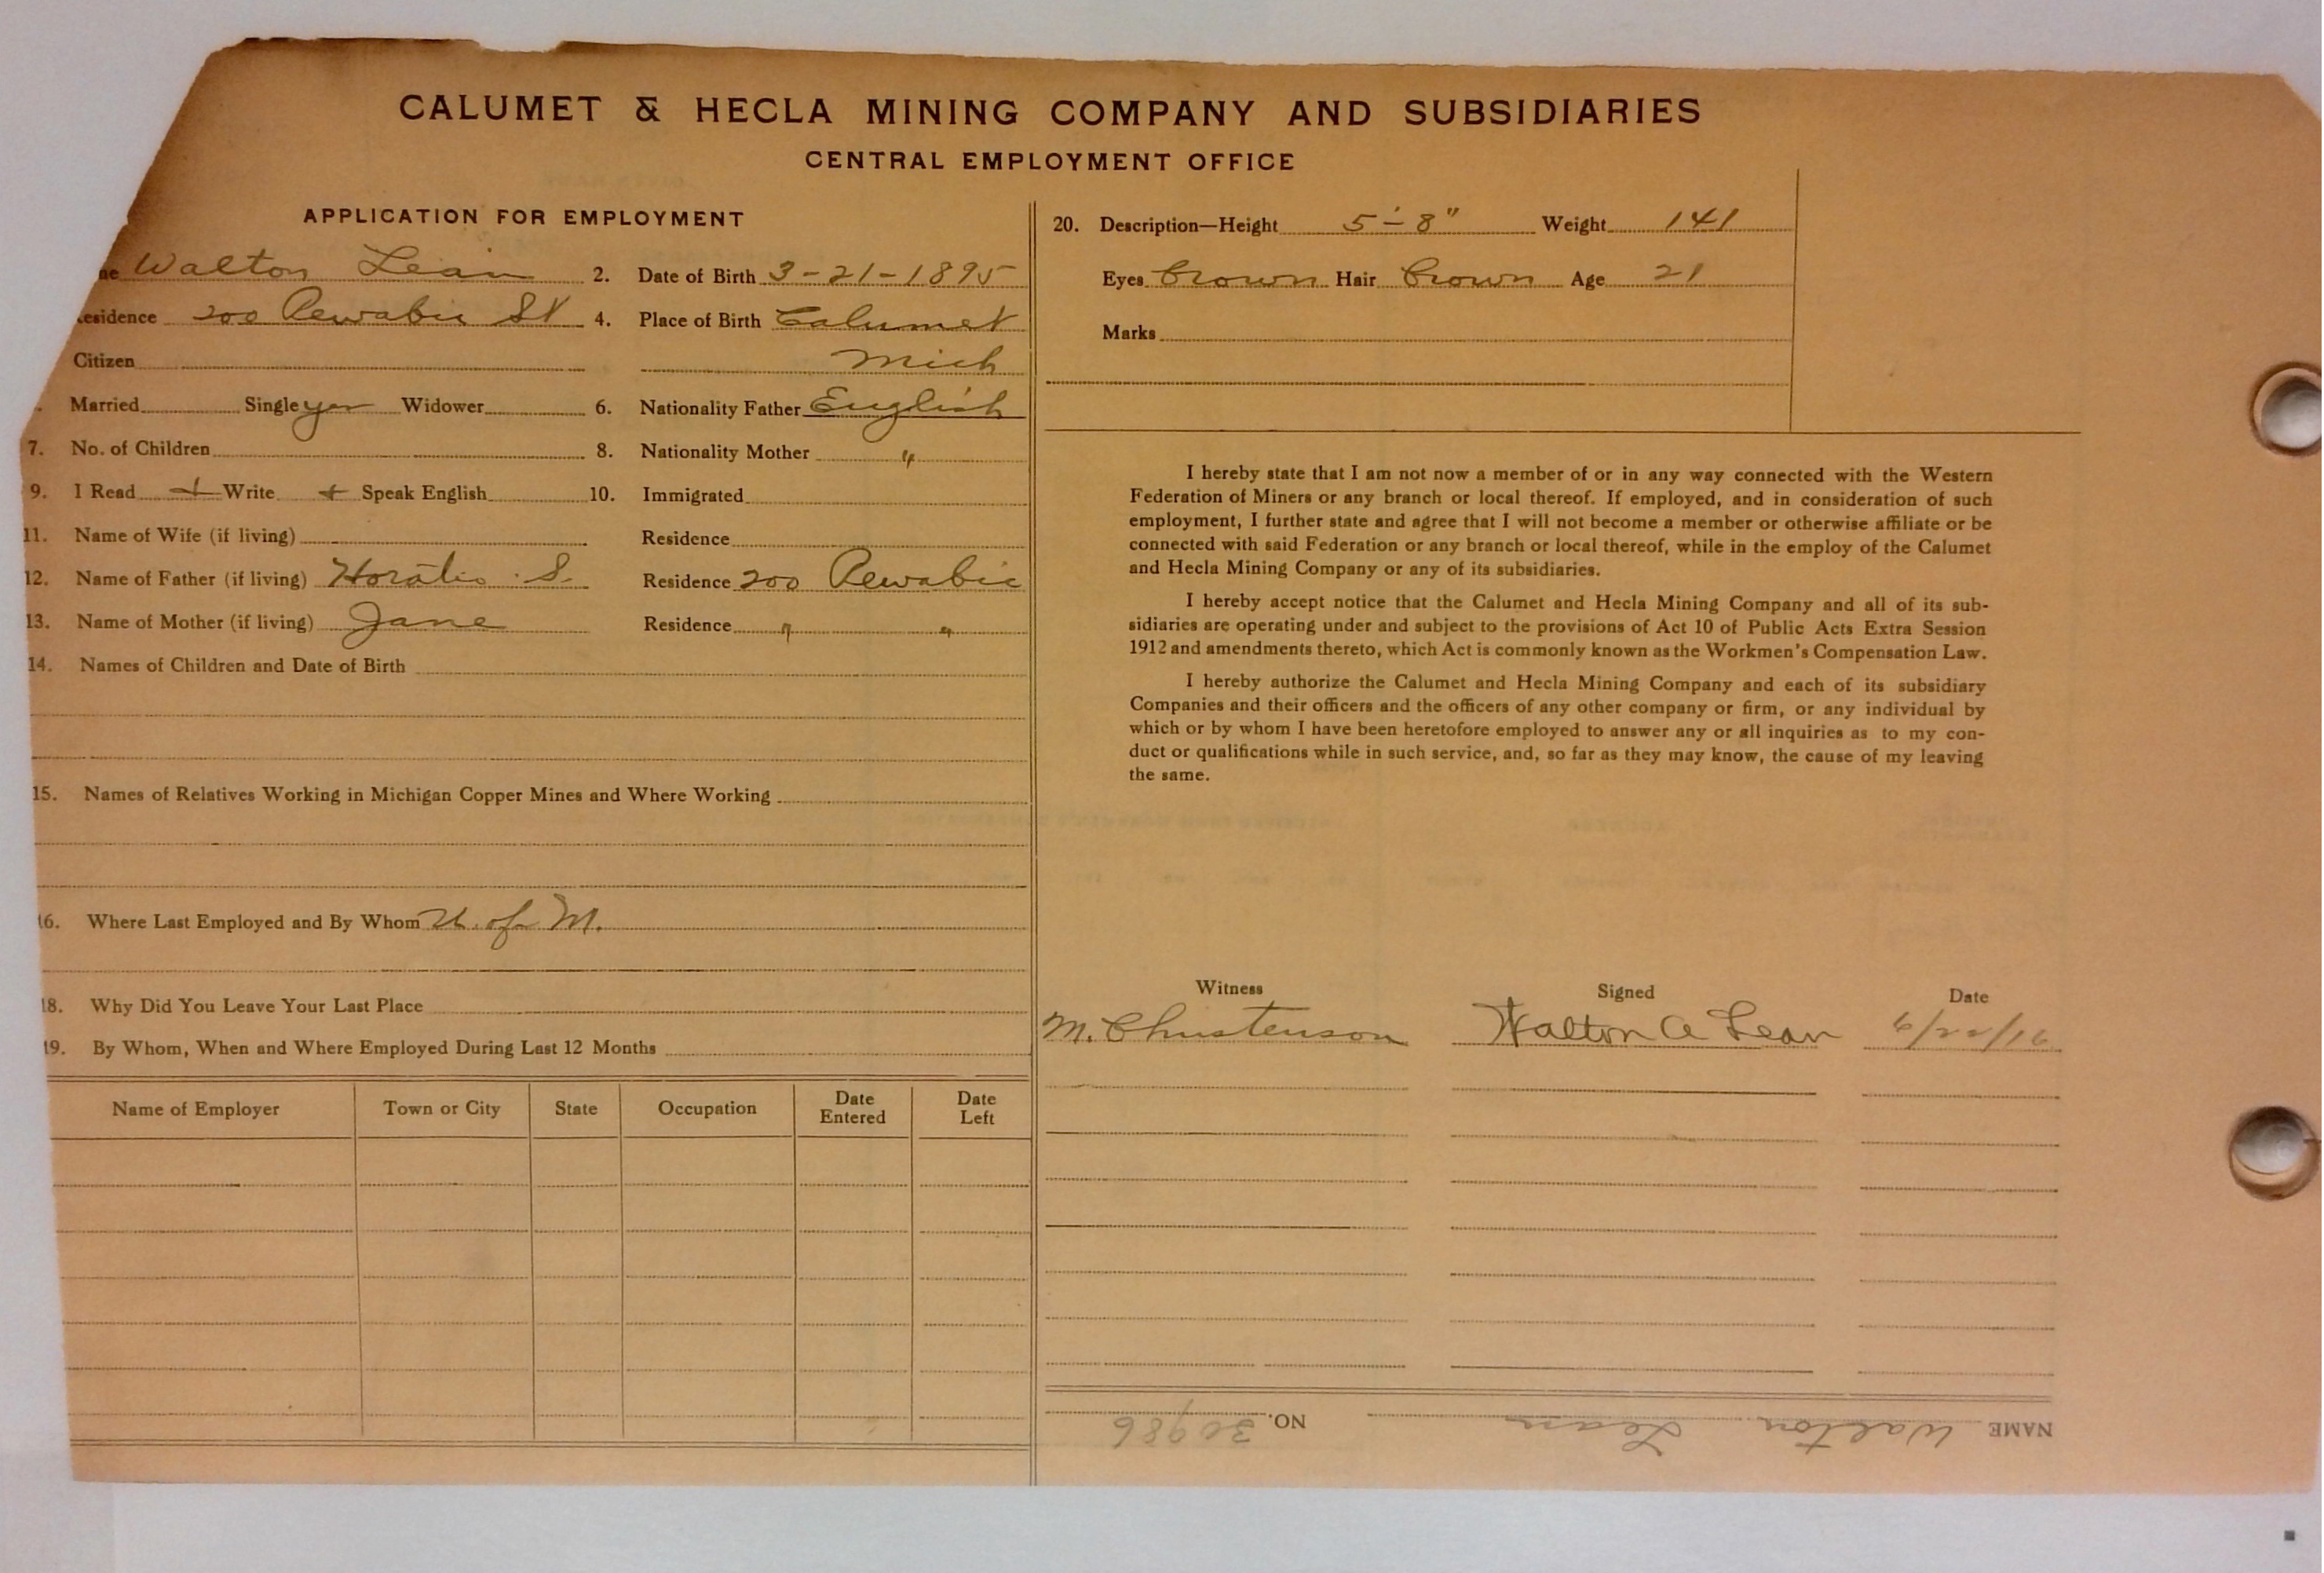 CALUMET & HECLA MINING COMPANY AND SUBSIDIARIES
CENTRAL EMPLOYMENT OFFICE
APPLICATION FOR EMPLOYMENT
me Walton Lean 2. Date of Birth 3-21-1895
esidence 200 Pewabic St 4. Place of Birth Calumet
Citizen Mich
Married Single yes Widower 6. Nationality Father English
7. No. of Children 8. Nationality Mother "
9. I Read + Write + Speak English 10. Immigrated
11. Name of Wife (if living) Residence
12. Name of Father (if living) Horatio S. Residence 200 Pewabic
13. Name of Mother (if living) Jane Residence " "
14. Names of Children and Date of Birth
15. Names of Relatives Working in Michigan Copper Mines and Where Working
16. Where Last Employed and By Whom U. of M.
18. Why Did You Leave Your Last Place
19. By Whom, When and Where Employed During Last 12 Months
Name of Employer Town or City State Occupation Date Entered Date Left
20. Description—Height 5'-8" Weight 141
Eyes Brown Hair Brown Age 21
Marks
I hereby state that I am not now a member of or in any way connected with the Western
Federation of Miners or any branch or local thereof. If employed, and in consideration of such
employment, I further state and agree that I will not become a member or otherwise affiliate or be
connected with said Federation or any branch or local thereof, while in the employ of the Calumet
and Hecla Mining Company or any of its subsidiaries.
I hereby accept notice that the Calumet and Hecla Mining Company and all of its sub-
sidiaries are operating under and subject to the provisions of Act 10 of Public Acts Extra Session
1912 and amendments thereto, which Act is commonly known as the Workmen's Compensation Law.
I hereby authorize the Calumet and Hecla Mining Company and each of its subsidiary
Companies and their officers and the officers of any other company or firm, or any individual by
which or by whom I have been heretofore employed to answer any or all inquiries as to my con-
duct or qualifications while in such service, and, so far as they may know, the cause of my leaving
the same.
Witness Signed Date
M. Christenson Walton A Lean 6/22/16
NAME Walton Lean NO. 30986